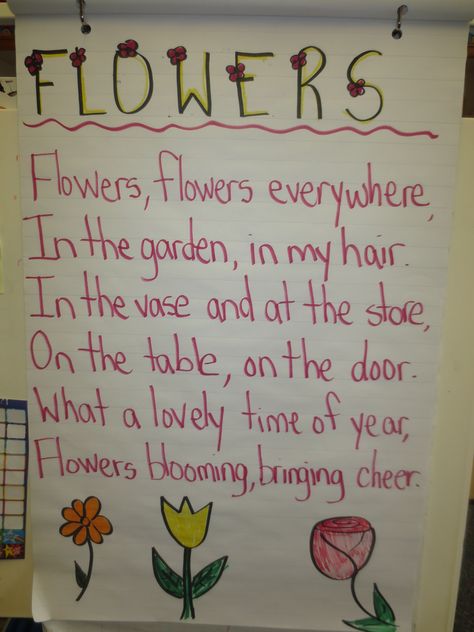 FLOWERS
Flowers, flowers everywhere,
In the garden, in my hair.
In the vase and at the store,
On the table, on the door.
What a lovely time of year,
Flowers blooming, bringing cheer.